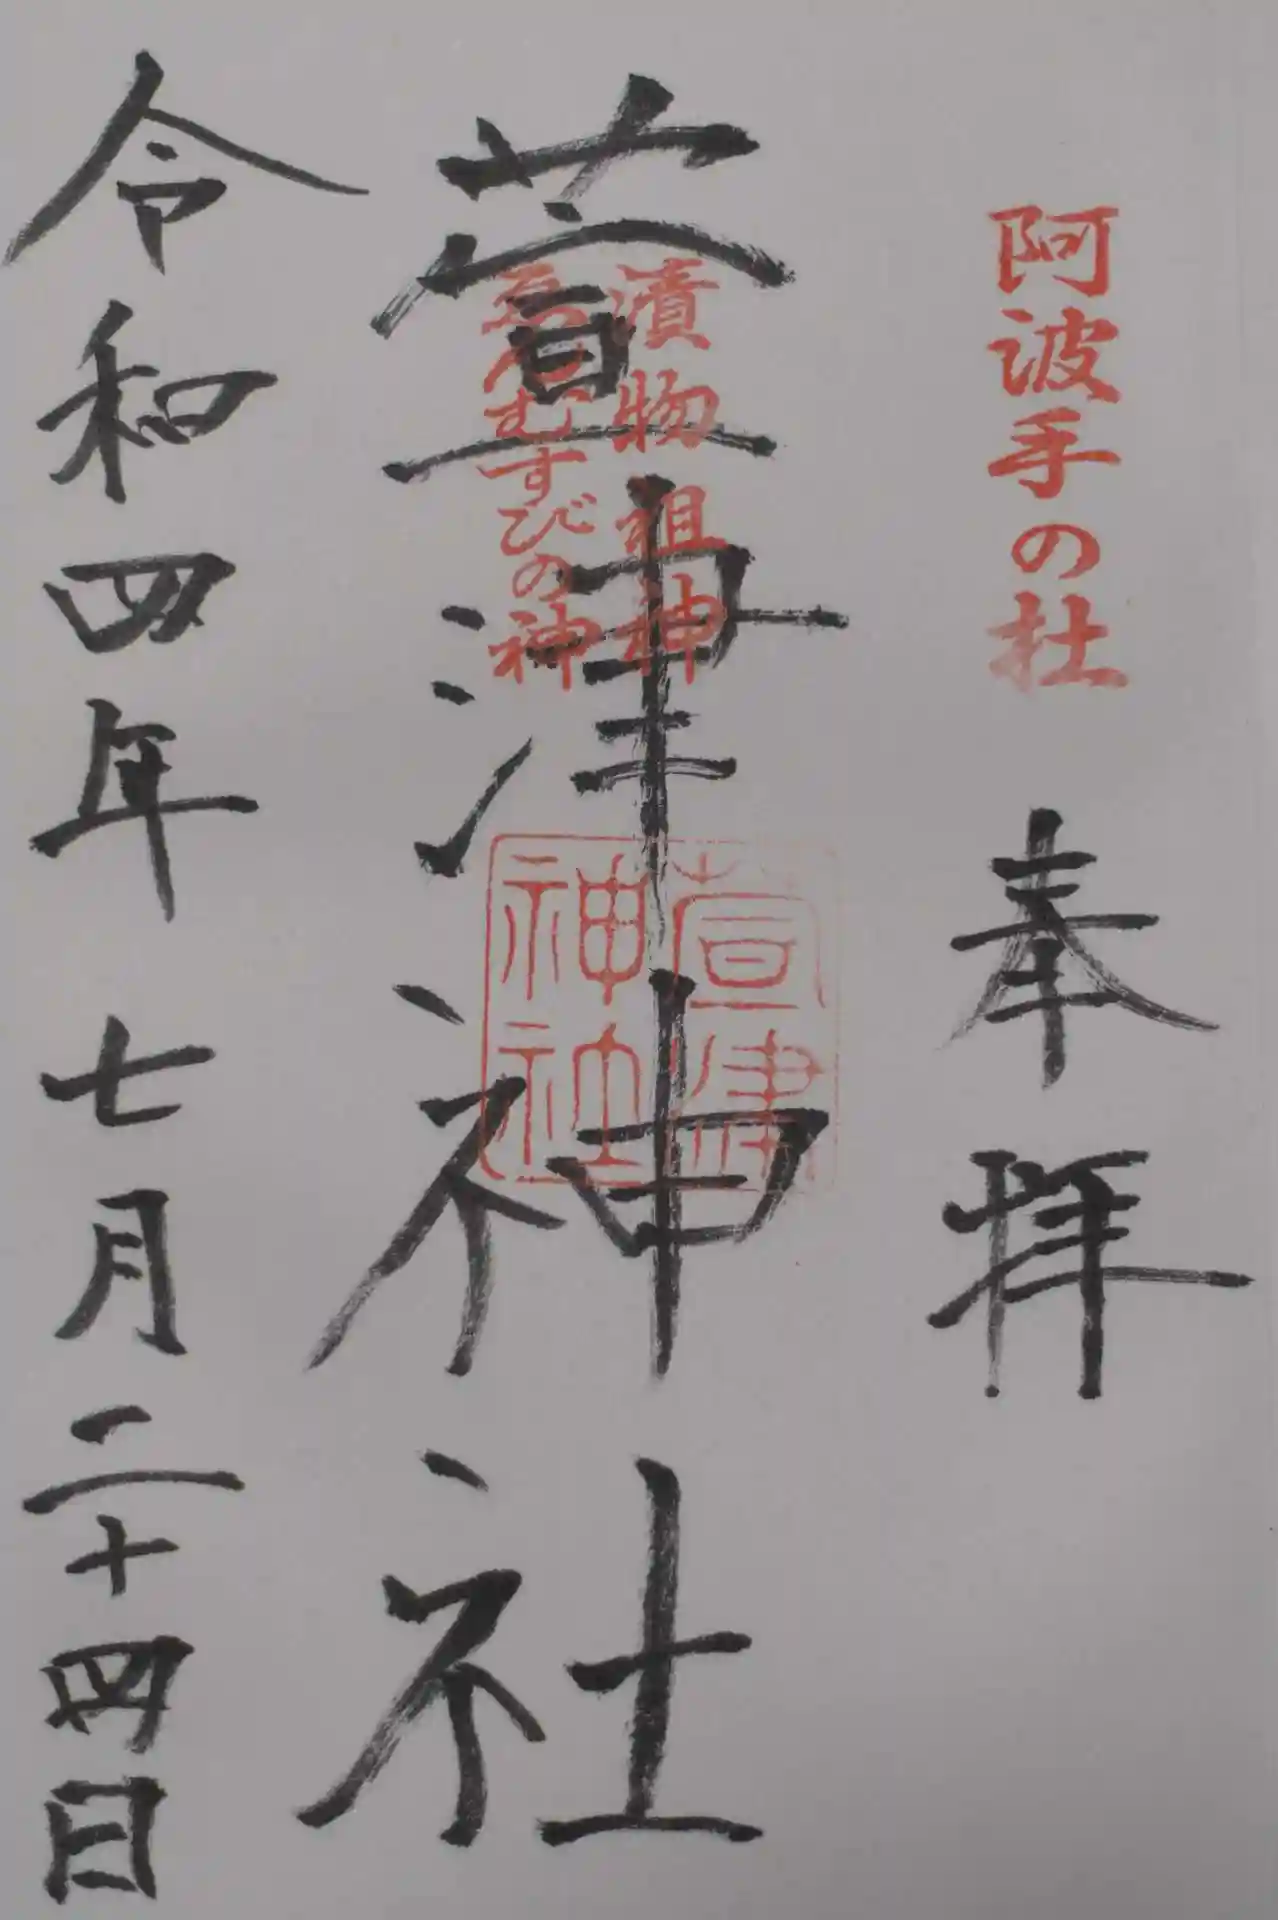 阿波手の杜
奉拝
漬物祖神
ゑんむすびの神
萱津神社
萱津
神社
令和四年七月二十四日